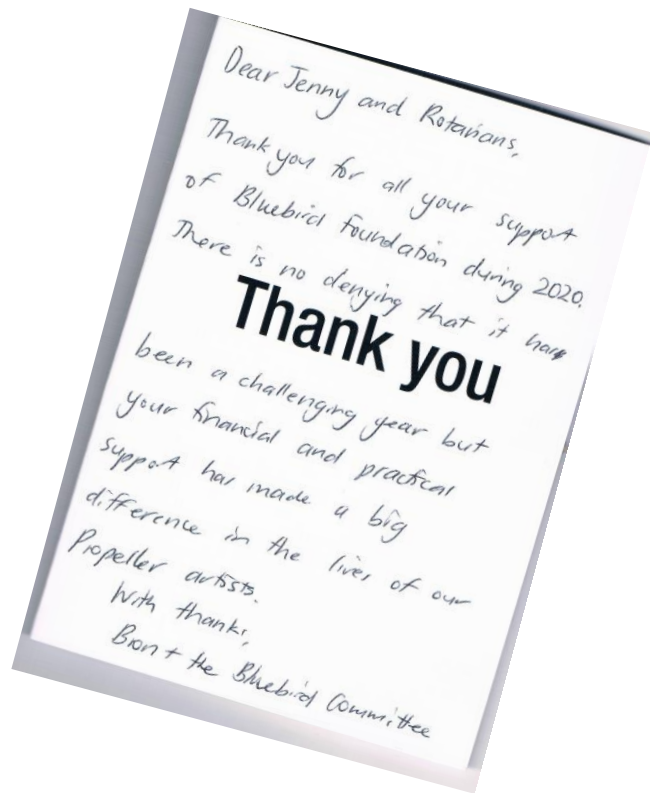 Dear Jenny and Rotarians,
Thank you for all your support
of Bluebird Foundation during 2020.
There is no denying that it has
Thank you
been a challenging year but
your financial and practical
support has made a big
difference in the lives of our
Propeller artists.
With thanks,
+ the Bluebird Committee